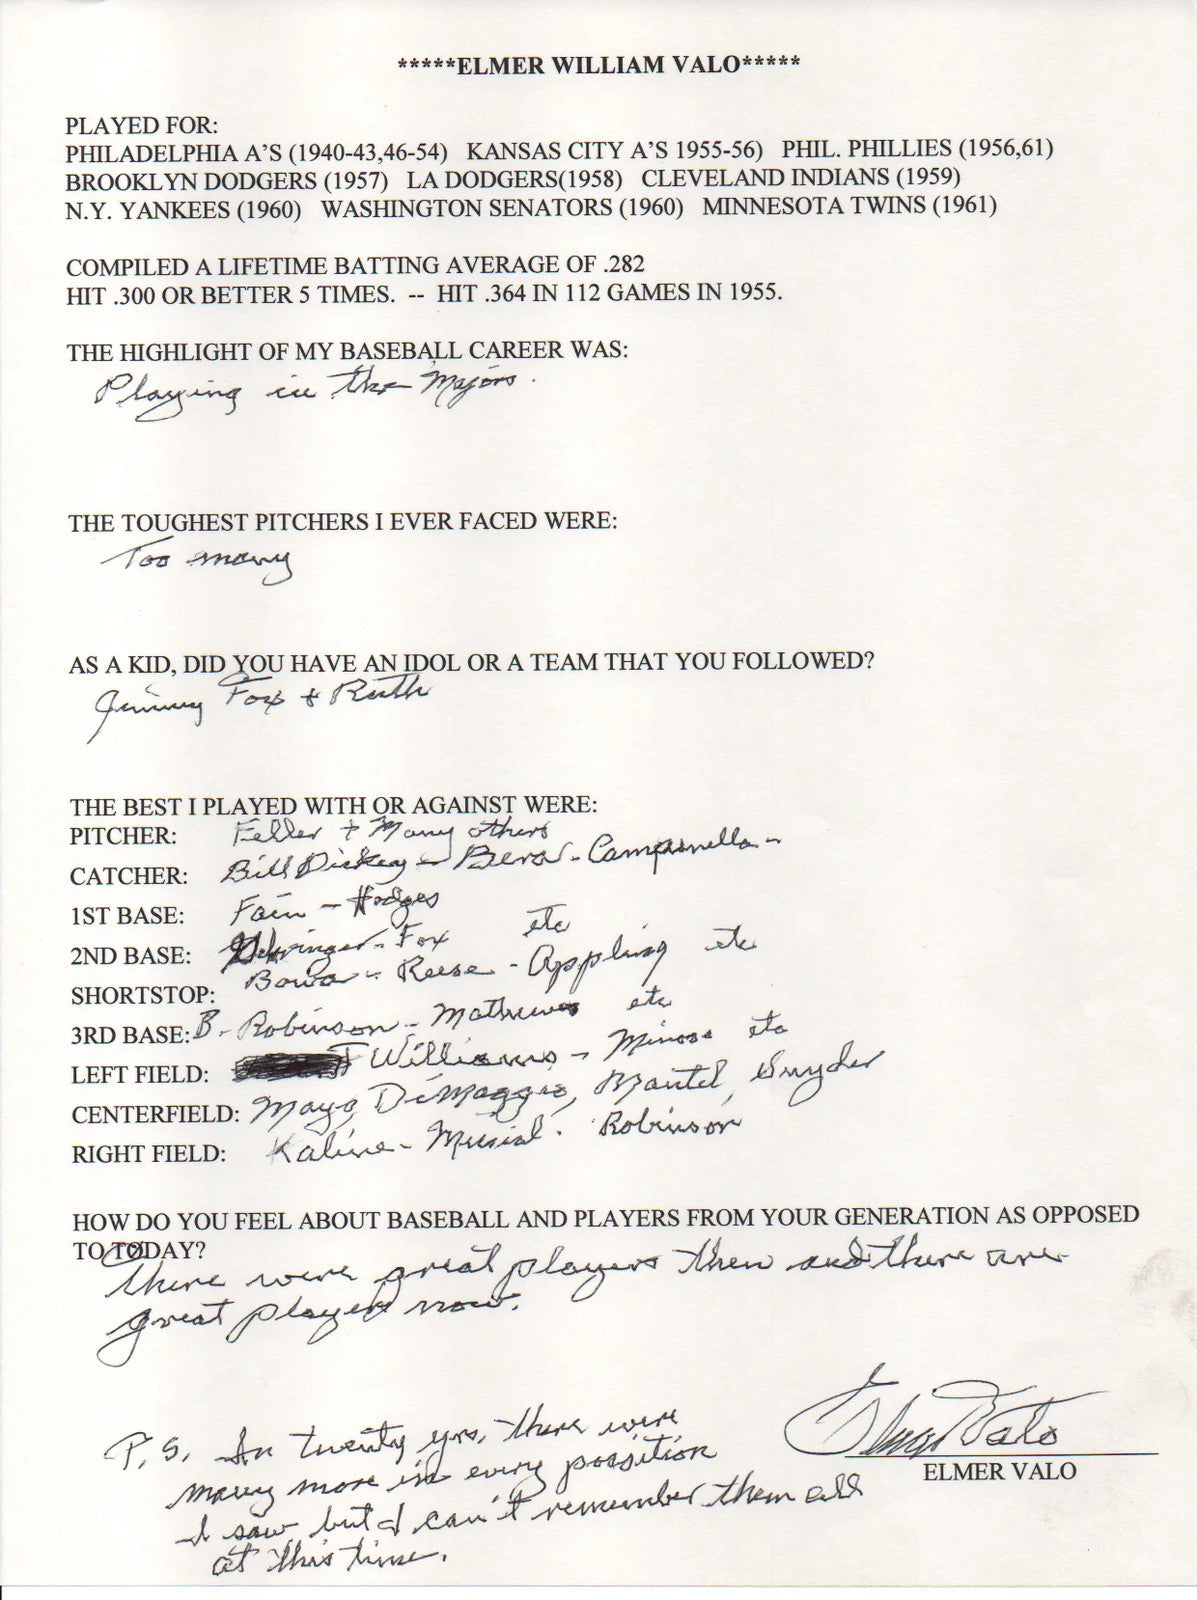 *****ELMER WILLIAM VALO*****
PLAYED FOR:
PHILADELPHIA A'S (1940-43,46-54) KANSAS CITY A'S 1955-56) PHIL. PHILLIES (1956,61)
BROOKLYN DODGERS (1957) LA DODGERS(1958) CLEVELAND INDIANS (1959)
N.Y. YANKEES (1960) WASHINGTON SENATORS (1960) MINNESOTA TWINS (1961)
COMPILED A LIFETIME BATTING AVERAGE OF .282
HIT .300 OR BETTER 5 TIMES. -- HIT .364 IN 112 GAMES IN 1955.
THE HIGHLIGHT OF MY BASEBALL CAREER WAS:
Playing in the Majors.
THE TOUGHEST PITCHERS I EVER FACED WERE:
Too many
AS A KID, DID YOU HAVE AN IDOL OR A TEAM THAT YOU FOLLOWED?
Jimmy Fox + Ruth
THE BEST I PLAYED WITH OR AGAINST WERE:
PITCHER: Feller + Many others
CATCHER: Bill Dickey - Berra - Campanella -
1ST BASE: Fain - Hodges
2ND BASE: Gehringer - Fox etc
SHORTSTOP: Bowa - Reese - Appling etc
3RD BASE: B. Robinson - Mathews etc
LEFT FIELD: T Williams - Minoso etc
CENTERFIELD: Mays, DiMaggio, Mantel, Snyder
RIGHT FIELD: Kaline - Musial. Robinson
HOW DO YOU FEEL ABOUT BASEBALL AND PLAYERS FROM YOUR GENERATION AS OPPOSED
TO TODAY?
There were great players then and there are
great players now.
Elmer Valo
ELMER VALO
P.S. In twenty yrs, there were
many more in every possition
I saw but I can't remember them all
at this time.